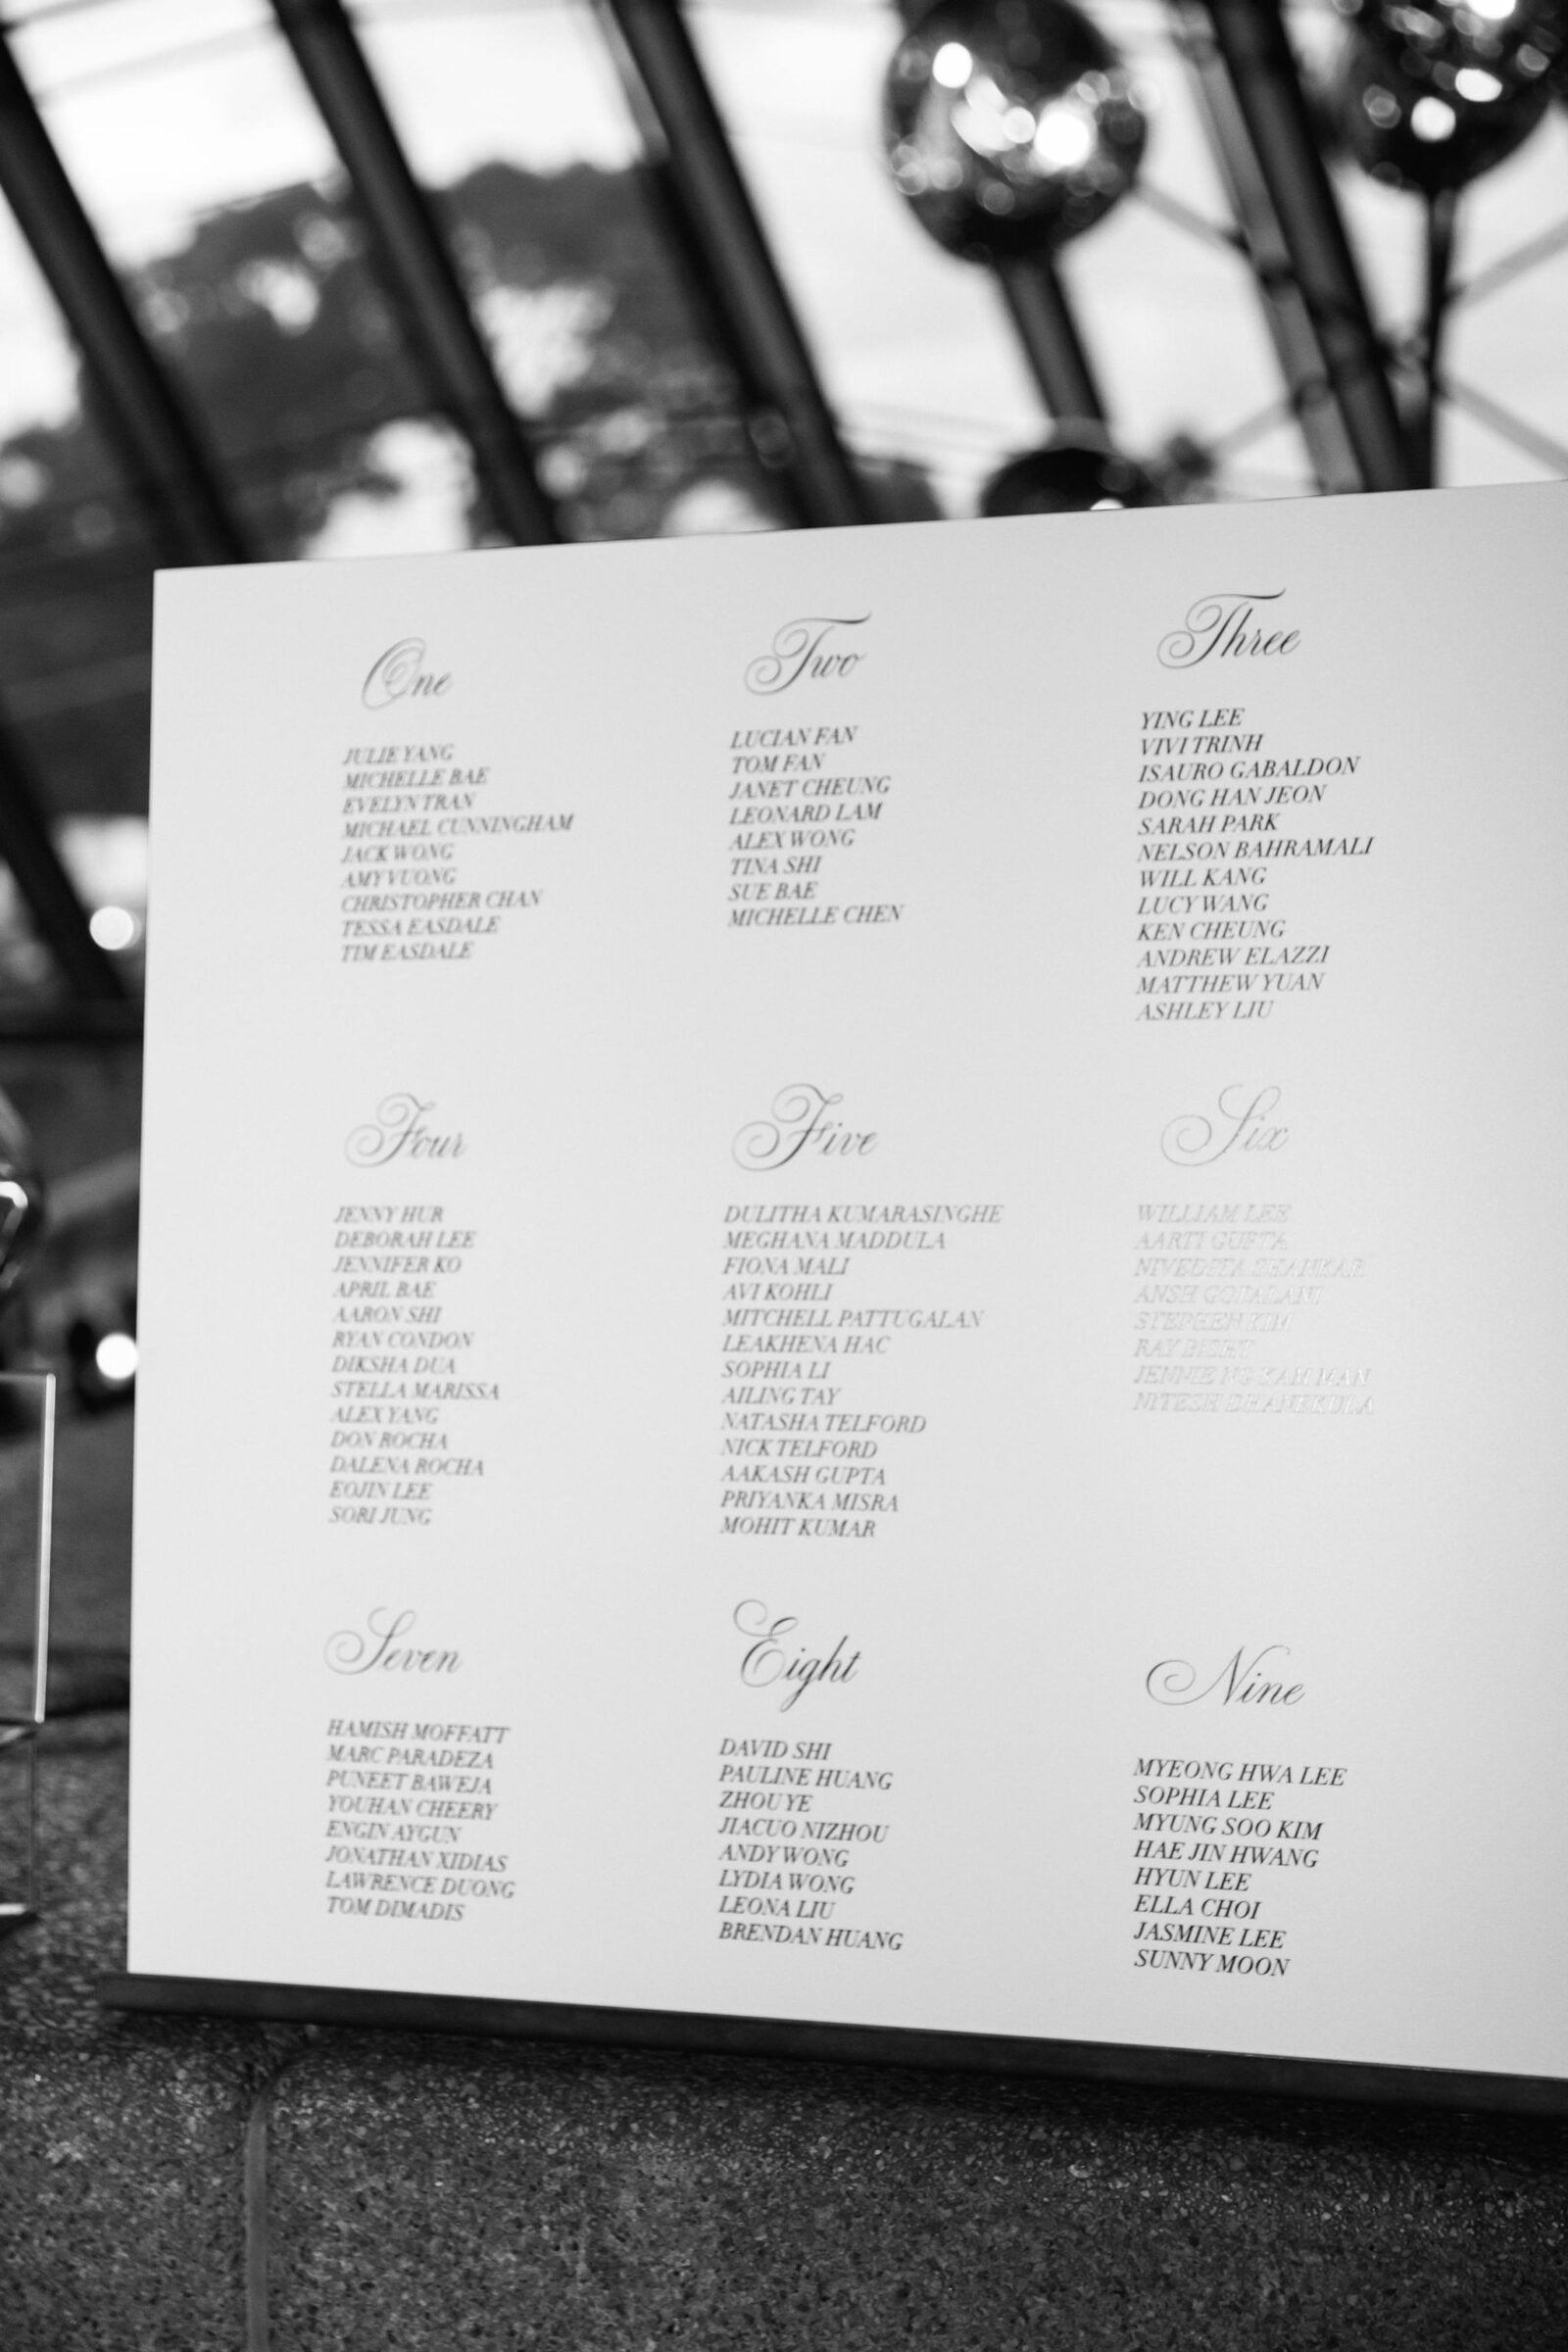 One
JULIE YANG
MICHELLE BAE
EVELYN TRAN
MICHAEL CUNNINGHAM
JACK WONG
AMY VUONG
CHRISTOPHER CHAN
TESSA EASDALE
TIM EASDALE
Two
LUCIAN FAN
TOM FAN
JANET CHEUNG
LEONARD LAM
ALEX WONG
TINA SHI
SUE BAE
MICHELLE CHEN
Three
YING LEE
VIVI TRINH
ISAURO GABALDON
DONG HAN JEON
SARAH PARK
NELSON BAHRAMALI
WILL KANG
LUCY WANG
KEN CHEUNG
ANDREW ELAZZI
MATTHEW YUAN
ASHLEY LIU
Four
JENNY HUR
DEBORAH LEE
JENNIFER KO
APRIL BAE
AARON SHI
RYAN CONDON
DIKSHA DUA
STELLA MARISSA
ALEX YANG
DON ROCHA
DALENA ROCHA
EOJIN LEE
SORI JUNG
Five
DULITHA KUMARASINGHE
MEGHANA MADDULA
FIONA MALI
AVI KOHLI
MITCHELL PATTUGALAN
LEAKHENA HAC
SOPHIA LI
AILING TAY
NATASHA TELFORD
NICK TELFORD
AAKASH GUPTA
PRIYANKA MISRA
MOHIT KUMAR
Six
WILLIAM LEE
AARTI GUPTA
NIVEDITA SHANKAR
ANSH GOPALANI
STEPHEN KIM
RAY BISHT
JENNIE NG KAM MAN
NITESH DHANEKULA
Seven
HAMISH MOFFATT
MARC PARADEZA
PUNEET BAWEJA
YOUHAN CHEERY
ENGIN AYGUN
JONATHAN XIDIAS
LAWRENCE DUONG
TOM DIMADIS
Eight
DAVID SHI
PAULINE HUANG
ZHOU YE
JIACUO NIZHOU
ANDY WONG
LYDIA WONG
LEONA LIU
BRENDAN HUANG
Nine
MYEONG HWA LEE
SOPHIA LEE
MYUNG SOO KIM
HAE JIN HWANG
HYUN LEE
ELLA CHOI
JASMINE LEE
SUNNY MOON